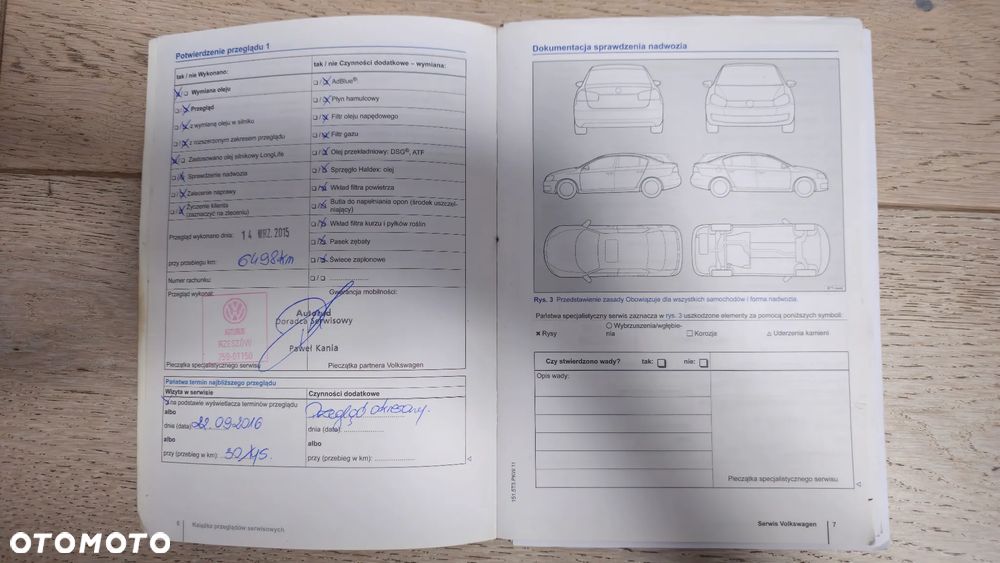 Potwierdzenie przeglądu 1
tak / nie Wykonano:
Wymiana oleju
Przegląd
z wymianą oleju w silniku
z rozszerzonym zakresem przeglądu
Zastosowano olej silnikowy LongLife
Sprawdzenie nadwozia
Zalecenie naprawy
Życzenie klienta
(zaznaczyć na zleceniu)
Przegląd wykonano dnia: 14 WRZ. 2015
przy przebiegu km: 6498 km
Numer rachunku:
Przegląd wykonał:
AUTORUD
RZESZÓW
759-01150
Pieczątka specjalistycznego serwisu
tak / nie Czynności dodatkowe – wymiana:
AdBlue®
Płyn hamulcowy
Filtr oleju napędowego
Filtr gazu
Olej przekładniowy: DSG®, ATF
Sprzęgło Haldex: olej
Wkład filtra powietrza
Butla do napełniania opon (środek uszczel-
niający)
Wkład filtra kurzu i pyłków roślin
Pasek zębaty
Świece zapłonowe
Gwarancja mobilności:
Autorud
Doradca Serwisowy
Paweł Kania
Pieczątka partnera Volkswagen
Państwa termin najbliższego przeglądu
Wizyta w serwisie
na podstawie wyświetlacza terminów przeglądu
albo
dnia (data): 22.09.2016
albo
przy (przebieg w km):
Czynności dodatkowe
Przegląd okresowy.
dnia (data):
albo
przy (przebieg w km):
6 Książka przeglądów serwisowych
Dokumentacja sprawdzenia nadwozia
Rys. 3 Przedstawienie zasady Obowiązuje dla wszystkich samochodów i forma nadwozia.
Państwa specjalistyczny serwis zaznacza w rys. 3 uszkodzone elementy za pomocą poniższych symboli:
Rysy
Wybrzuszenia/wgłębie-
nia
Korozja
Uderzenia kamieni
Czy stwierdzono wady? tak: nie:
Opis wady:
Pieczątka specjalistycznego serwisu
151.5T3.PKW.11
Serwis Volkswagen 7
OTOMOTO